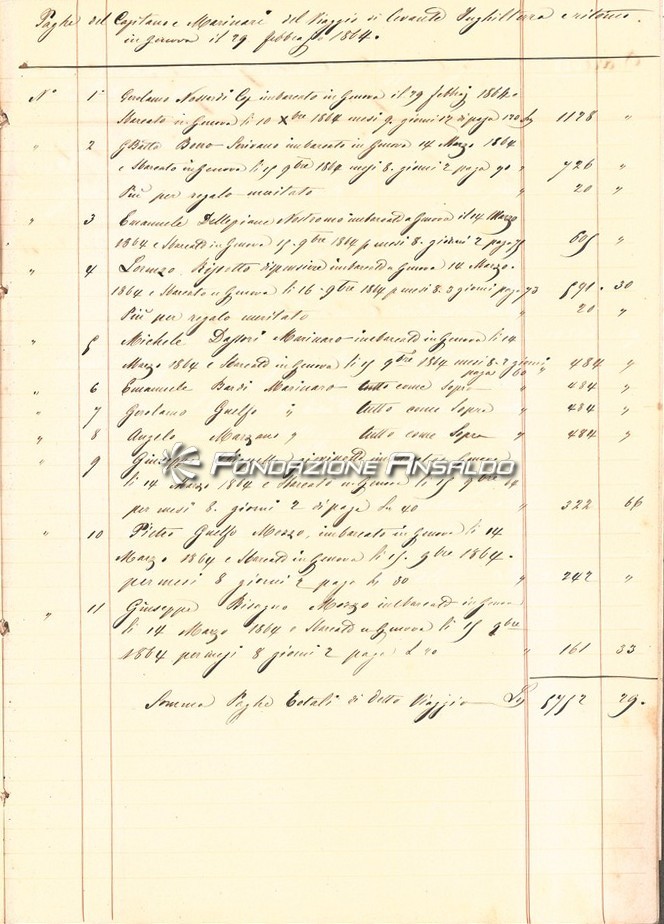 Paghe del Capitano e Marinari del Viaggio di Levante Inghilterra e ritorno.
in Genova il 29 febbraio 1864.
N° 1 Gerolamo Cap imbarcato in Genova il 29 febbraj 1864 e
Sbarcato in Genova li 10 Xbre 1864 mesi 9. giorni 12 di paga 120 1128 "
" 2 GBatta Bono Scrivano imbarcato in Genova 14 Marzo 1864
e Sbarcato in Genova li 15 9bre 1864 mesi 8. giorni 2 paga 90 " 726 "
Più per regalo meritato " 20 "
" 3 Emanuele Dellepiane Nostromo imbarcato a Genova il 14 Marzo
1864 e Sbarcato in Genova 15. 9bre 1864 p mesi 8. giorni 2 paga 75 605 "
" 4 Lorenzo Risetto dispensiere imbarcato a Genova 14 Marzo.
1864 e Sbarcato a Genova li 16. 9bre 1864 p mesi 8. 3 giorni paga 73 591. 30
Più per regalo meritato " 20 "
" 5 Michele Dastori Marinaro imbarcato in Genova li 14
Marzo 1864 e Sbarcato in Genova li 15 9bre 1864 mesi 8. 2 giorni
paga 60 " 484 "
" 6 Emanuele Bardi Marinaro tutto come Sopra " 484 "
" 7 Gerolamo Guelfo " tutto come Sopra " 484 "
" 8 Angelo Marzano " tutto come Sopra " 484 "
" 9 Giuseppe giovinotto imbarcato a Genova
li 14 Marzo 1864 e Sbarcato a Genova li 15 9bre 64
per mesi 8. giorni 2 di paga Ln 40 " 322 66
FONDAZIONE ANSALDO
" 10 Pietro Guelfo Mozzo, imbarcato in Genova li 14
Marzo 1864 e Sbarcato in Genova li 15. 9bre 1864.
per mesi 8 giorni 2 paga Ln 30 " 242 "
" 11 Giuseppe Bisagno Mozzo imbarcato in Genova
li 14 Marzo 1864 e Sbarcato a Genova li 15 9bre
1864 per mesi 8 giorni 2 paga L 20 " 161 33
Somma Paghe Totali di detto Viaggio Ln 5752 29.